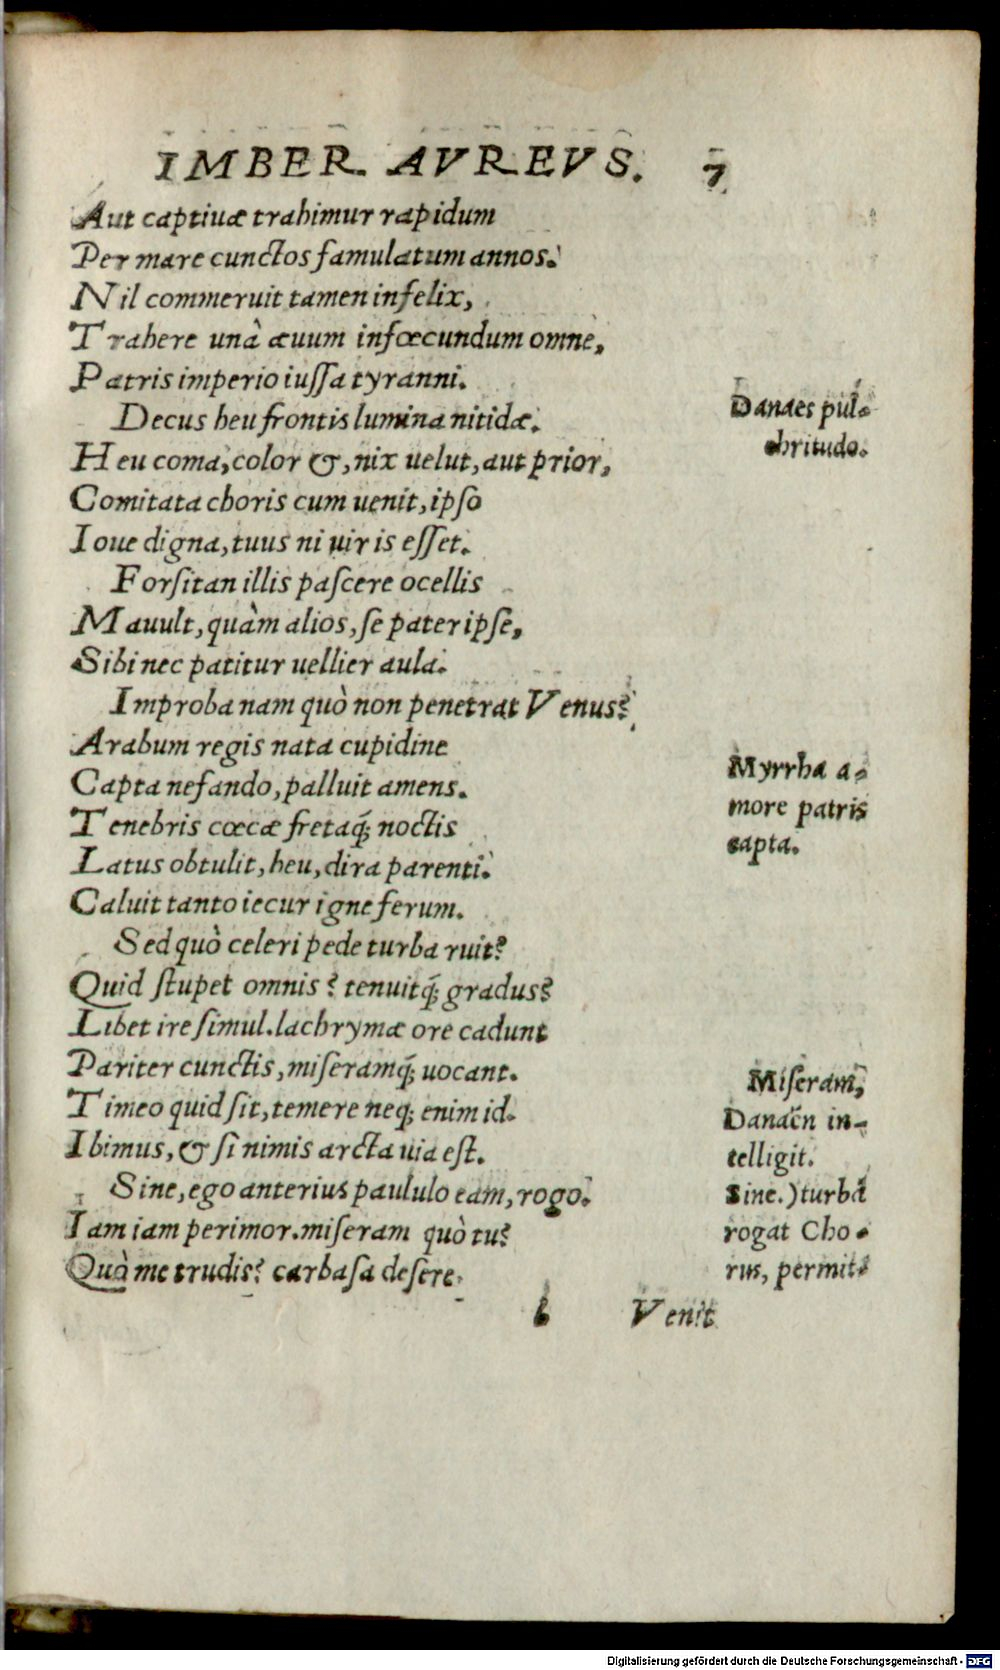 IMBER AVREVS. 7
Aut captiuæ trahimur rapidum
Per mare cunctos famulatum annos.
Nil commeruit tamen infelix,
Trahere unà æuum infœcundum omne,
Patris imperio iussa tyranni.
Decus heu frontis lumina nitidæ.
Heu coma, color &, nix uelut, aut prior,
Comitata choris cum uenit, ipso
Ioue digna, tuus ni uir is esset.
Forsitan illis pascere ocellis
Mauult, quàm alios, se pater ipse,
Sibi nec patitur uellier aula.
Improba nam quò non penetrat Venus?
Arabum regis nata cupidine
Capta nefando, palluit amens.
Tenebris cœcæ fretaq; noctis
Latus obtulit, heu, dira parenti.
Caluit tanto iecur igne ferum.
Sed quò celeri pede turba ruit?
Quid stupet omnis? tenuitq; gradus?
Libet ire simul. lachrymæ ore cadunt
Pariter cunctis, miseramq; uocant.
Timeo quid sit, temere neq; enim id.
Ibimus, & si nimis arcta uia est.
Sine, ego anterius paululo eam, rogo.
Iam iam perimor. miseram quò tu?
Quò me trudis? carbasa desere.
b Venit
Danaes pul-
chritudo.
Myrrha a-
more patris
capta.
Miseram,
Danaën in-
telligit.
Sine.) turba
rogat Cho-
rus, permit-
Digitalisierung gefördert durch die Deutsche Forschungsgemeinschaft - DFG